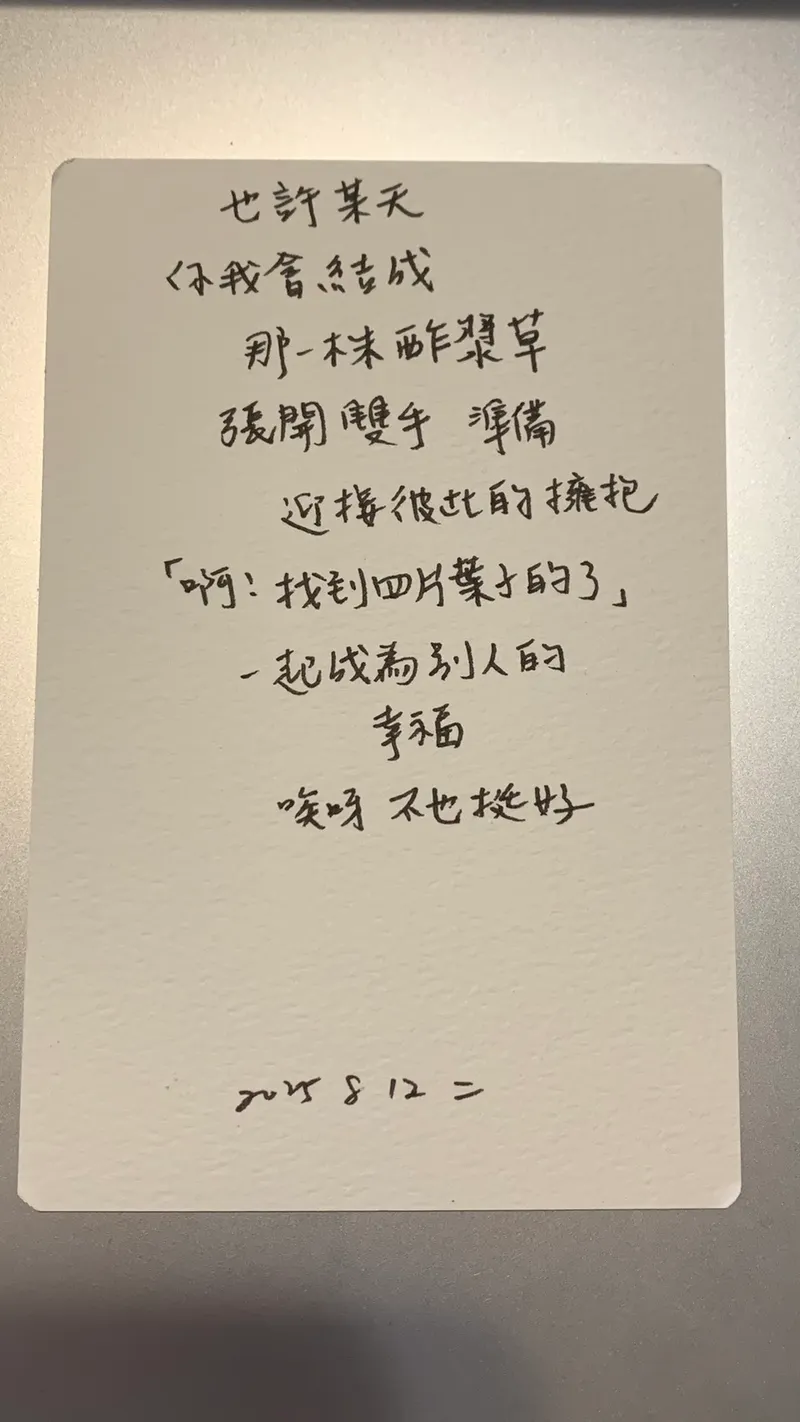 也許某天
你我會結成
那一株酢漿草
張開雙手 準備
迎接彼此的擁抱
「啊！找到四片葉子的了」
一起成為別人的
幸福
唉呀 不也挺好
2025 8 12 二